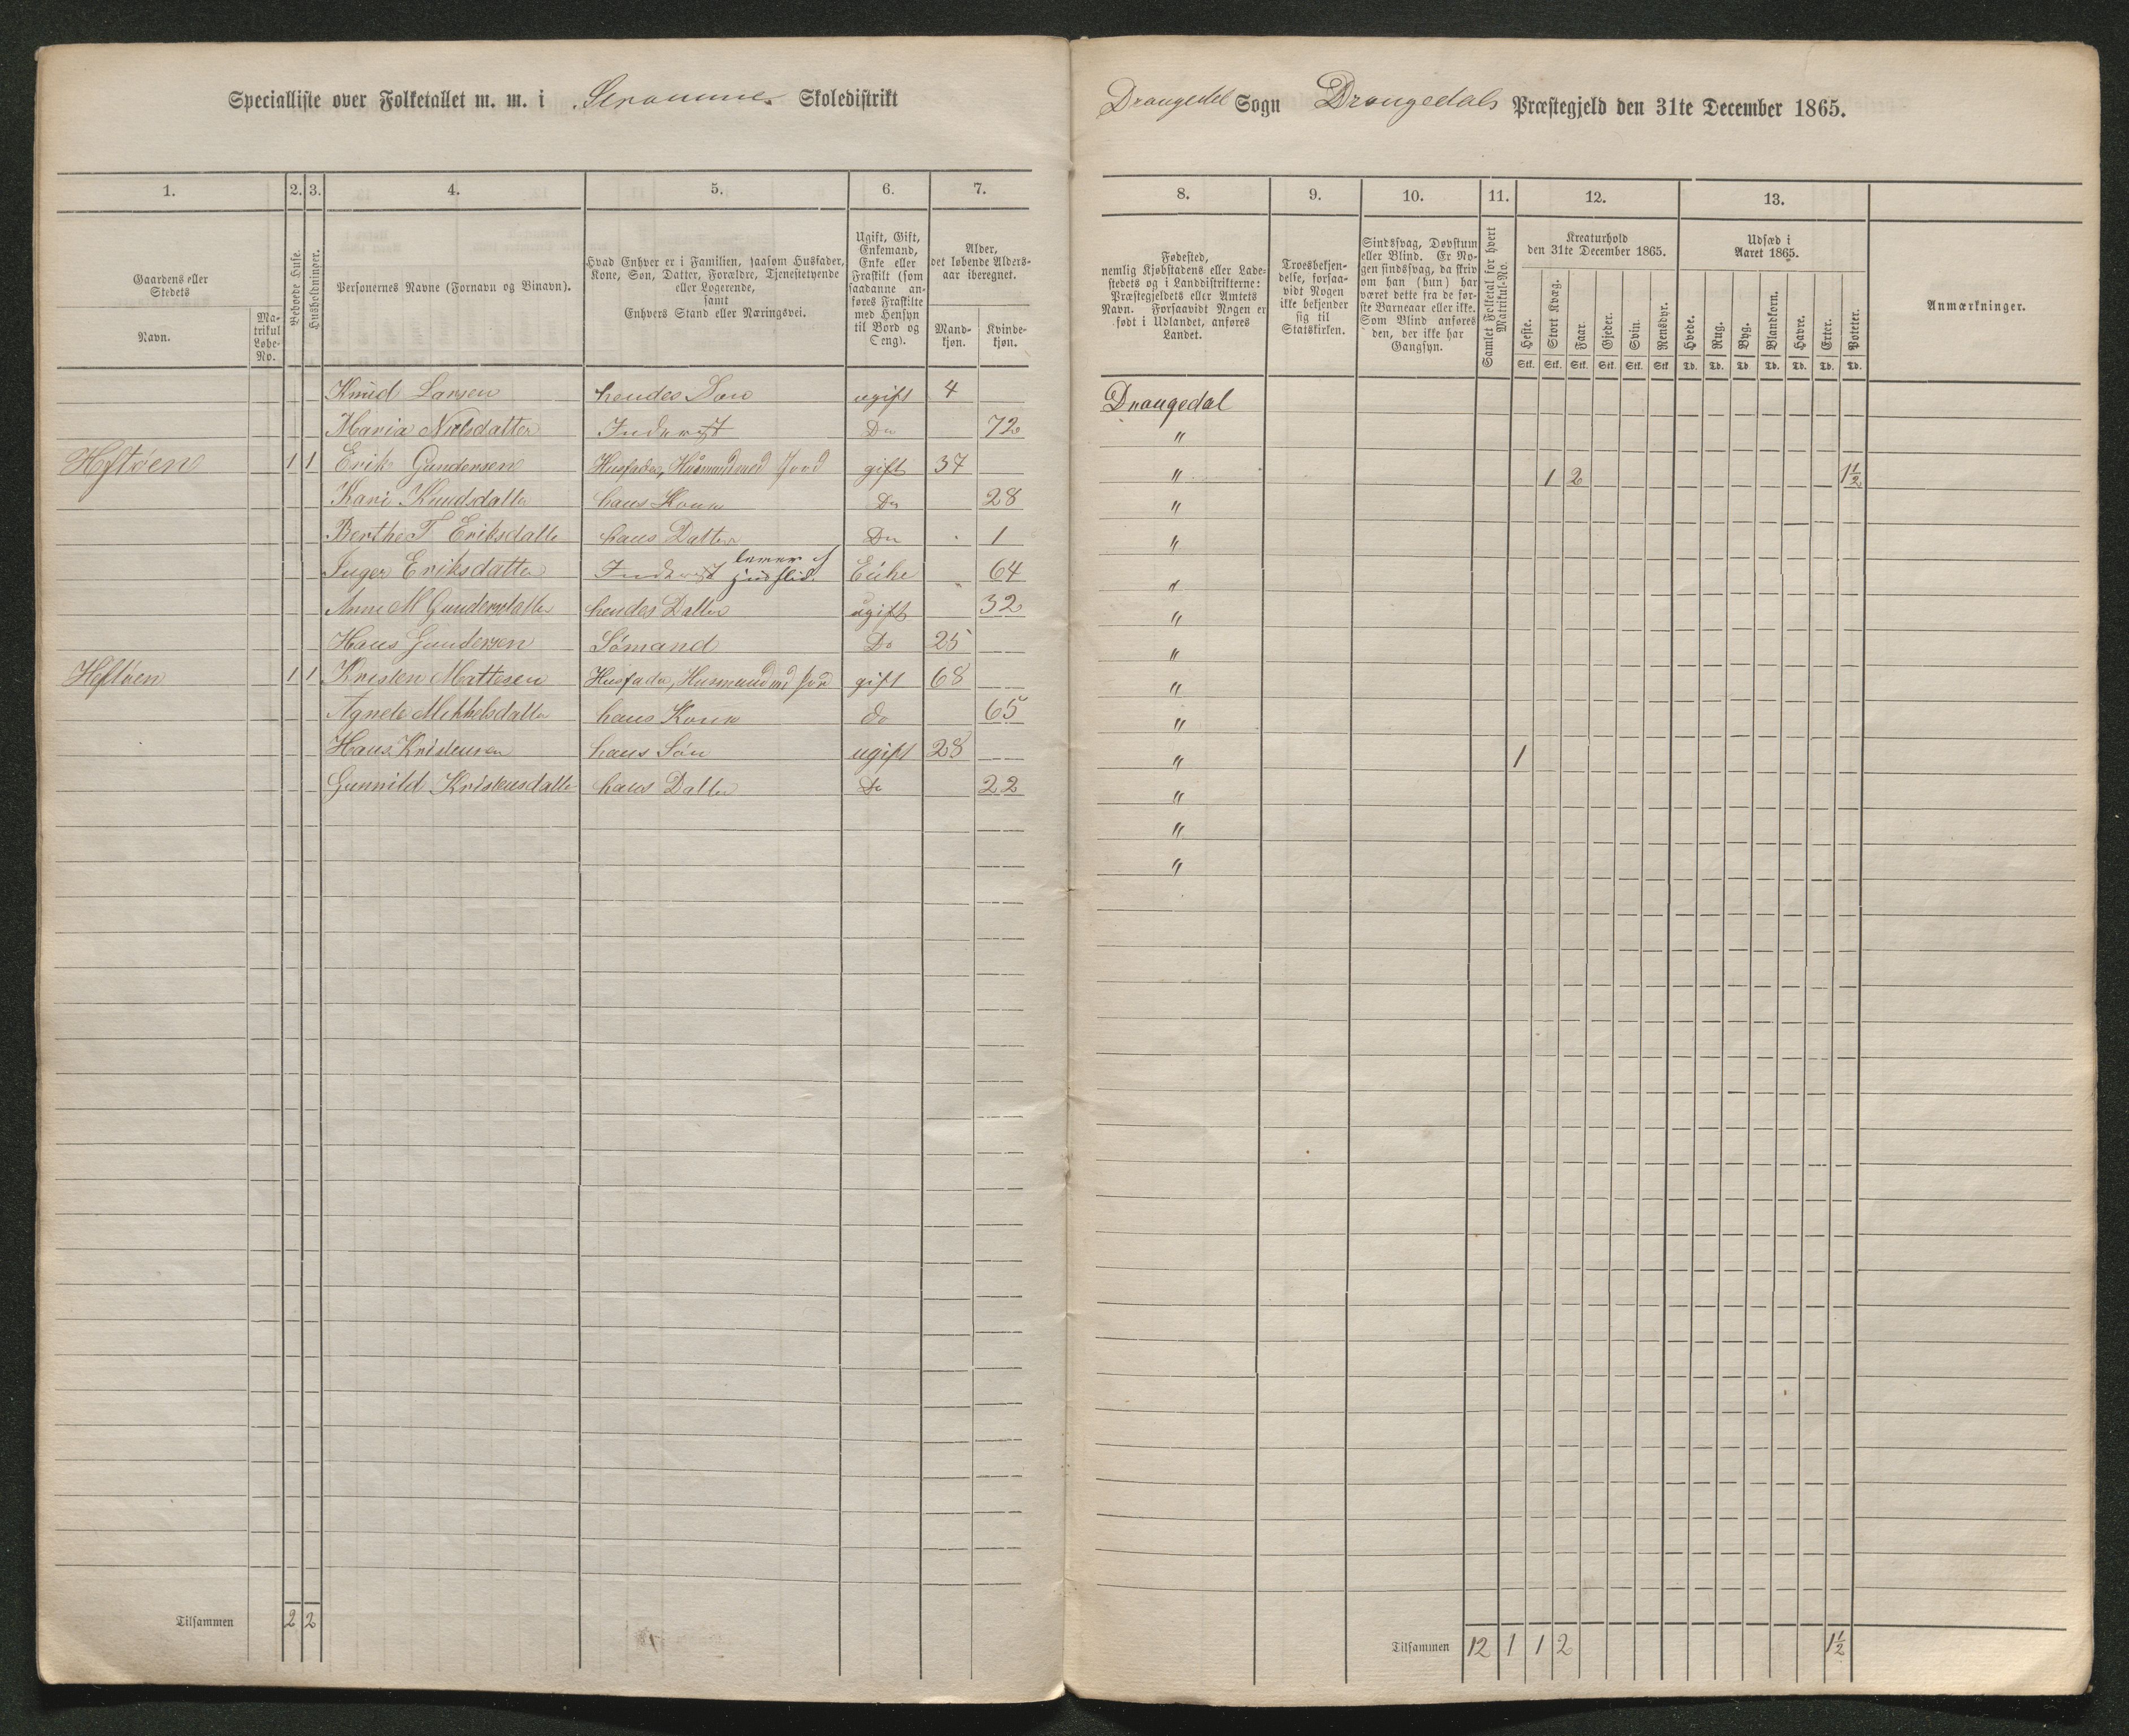 Specialliste over Folketallet m. m. i Skoledistrikt
Drangedal Sogn Drangedals Præstegjeld den 31te December 1865.
1. 2. 3. 4. 5. 6. 7. 8. 9. 10. 11. 12. 13.
Gaardens eller Stedets
Navn.
Matrikul Løbe-No.
Beboede Huse.
Husholdninger.
Personernes Navne (Fornavn og Binavn).
Hvad Enhver er i Familien, saasom Husfader,
Kone, Søn, Datter, Forældre, Tjenestetyende
eller Logerende,
samt
Enhvers Stand eller Næringsvei.
Ugift, Gift,
Enkemand,
Enke eller
Fraskilt (som
saadanne an-
føres Fraskilte
med Hensyn
til Bord og
Seng).
Alder,
det løbende Alders-
aar iberegnet.
Mand-
kjøn.
Kvinde-
kjøn.
Fødested,
nemlig Kjøbstadens eller Lade-
stedets og i Landdistrikterne:
Præstegjeldets eller Amtets
Navn. Forsaavidt Nogen er
født i Udlandet, anføres
Landet.
Troesbekjen-
delse, forsaa-
vidt Nogen
ikke bekjender
sig til
Statskirken.
Sindssvag, Døvstum
eller Blind. Er No-
gen sindssvag, da skriv
om han (hun) har
været dette fra de før-
ste Barneaar eller ikke.
Som Blind anføres
den, der ikke har
Gangsyn.
Samlet Folketal for hvert
Matrikul-No.
Kreaturhold
den 31te December 1865.
Heste. Stort Kvæg. Faar. Gjeder. Svin. Rensdyr.
Stk. Stk. Stk. Stk. Stk. Stk.
Udsæd i
Aaret 1865.
Hvede. Rug. Byg. Blandkorn. Havre. Erter. Poteter.
Td. Td. Td Td. Td. Td. Td.
Anmærkninger.
Knud Larsen hendes Søn ugift 4 Drangedal
Maria Nielsdatter Inderst Do 72 "
Heftøen 1 1 Erik Gundersen Husfader, Husmand med Jord gift 37 " 1 2 1½
Kari Knudsdatter hans Kone Do 28 "
Berthe T. Eriksdatte hans Datter Do 1 "
Inger Eriksdatter Inderst lever af Enke 64 "
Anne M Gundersdatter hendes Datter ugift 32 "
Hans Gundersen Sømand Do 25 "
Heftøen 1 1 Kristen Mattesen Husfader, Husmand md Jord gift 68 "
Agnete Mikkelsdatter hans Kone do 65 "
Hans Kristensen hans Søn ugift 28 " 1
Gunnild Kristensdatter hans Datter Do 22 "
"
"
Tilsammen 2 2
Tilsammen 12 1 1 2 1½